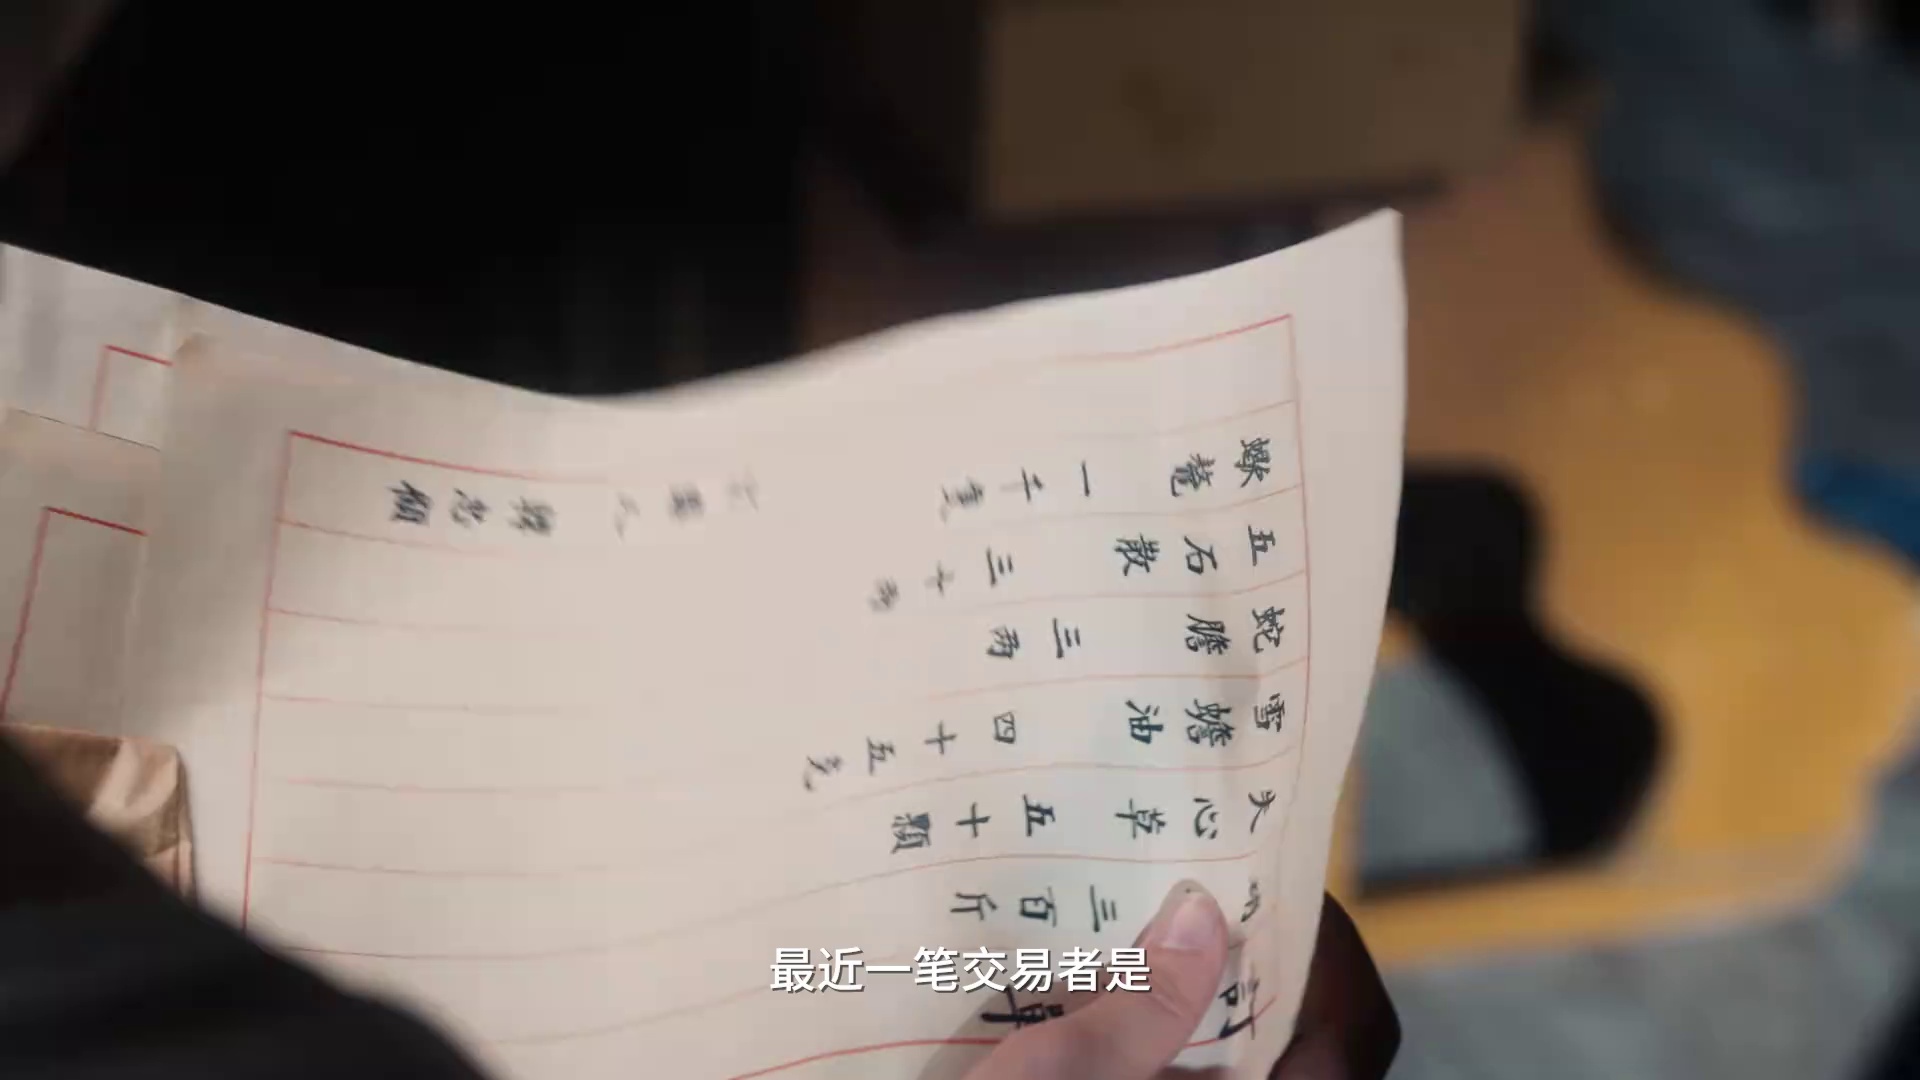 訂單
三百斤
失心草 五十顆
雪蟾油 四十五克
蛇膽 三兩
五石散 三十兩
蠍螯 一千隻
最近一笔交易者是